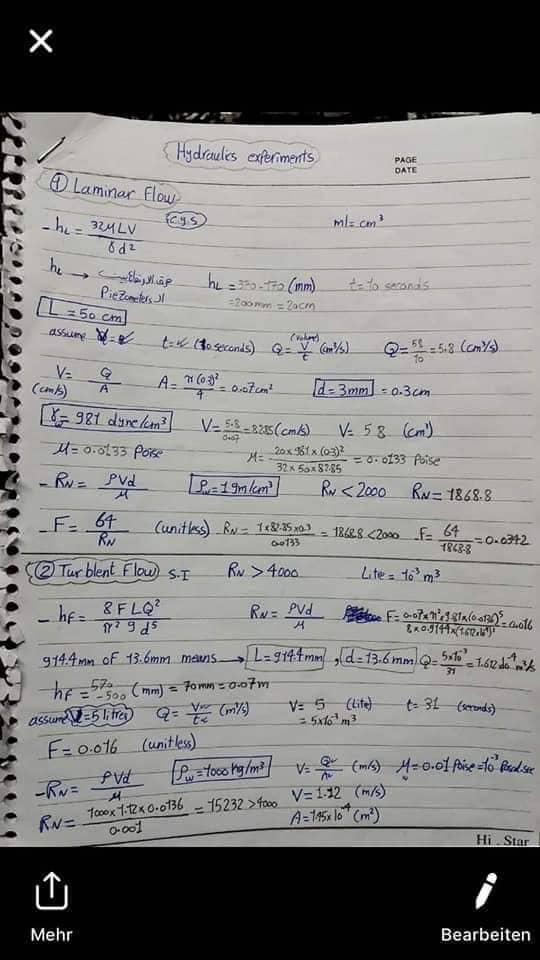 Hydraulics experiments
PAGE
DATE
① Laminar Flow
C.g.s
ml = cm³
- hL = 32μLV / γd²
hL → فرق الارتفاع
الـ Piezometers
hL = 370-170 (mm)
= 200mm = 20cm
t = 10 seconds
L = 50 cm
assume t = (10 seconds) Q = V (volume) / t (cm³/s) Q = 58/10 = 5.8 (cm³/s)
V = Q/A (cm/s) A = π(0.3)²/4 = 0.07cm² d = 3mm = 0.3cm
γw = 981 dyne/cm³ V = 5.8/0.07 = 82.85 (cm/s) V = 58 (cm³)
μ = 0.0133 Poise μ = 20×981×(0.3)² / 32×50×82.85 = 0.0133 Poise
- RN = ρVd/μ ρw = 1 gm/cm³ RN < 2000 RN = 1868.8
- F = 64/RN (unitless) RN = 1×82.85×0.3 / 0.0133 = 1868.8 < 2000 F = 64/1868.8 = 0.0342
② Turblent Flow S.I RN > 4000 Lite = 10⁻³ m³
- hf = 8FLQ² / π²gd⁵ RN = ρVd/μ F = 0.07×π²×9.81×(0.0136)⁵ / 8×0.9144×(1.612×10⁻⁴)² = 0.016
914.4mm OF 13.6mm means → L = 914.4mm , d = 13.6mm Q = 5×10⁻³/31 = 1.612×10⁻⁴ m³/s
hf = 570 - 500 (mm) = 70mm = 0.07m
assume V = 5 litres Q = V/t (m³/s) V = 5 (Lite) = 5×10⁻³ m³ t = 31 (seconds)
F = 0.016 (unitless)
- RN = ρVd/μ ρw = 1000 kg/m³ V = Q/A (m/s) μw = 0.01 Poise = 10⁻³ Pascal.sec
RN = 1000×1.12×0.0136 / 0.001 = 15232 > 4000 V = 1.12 (m/s)
A = 1.45×10⁻⁴ (m²)
Hi . Star
Mehr
Bearbeiten